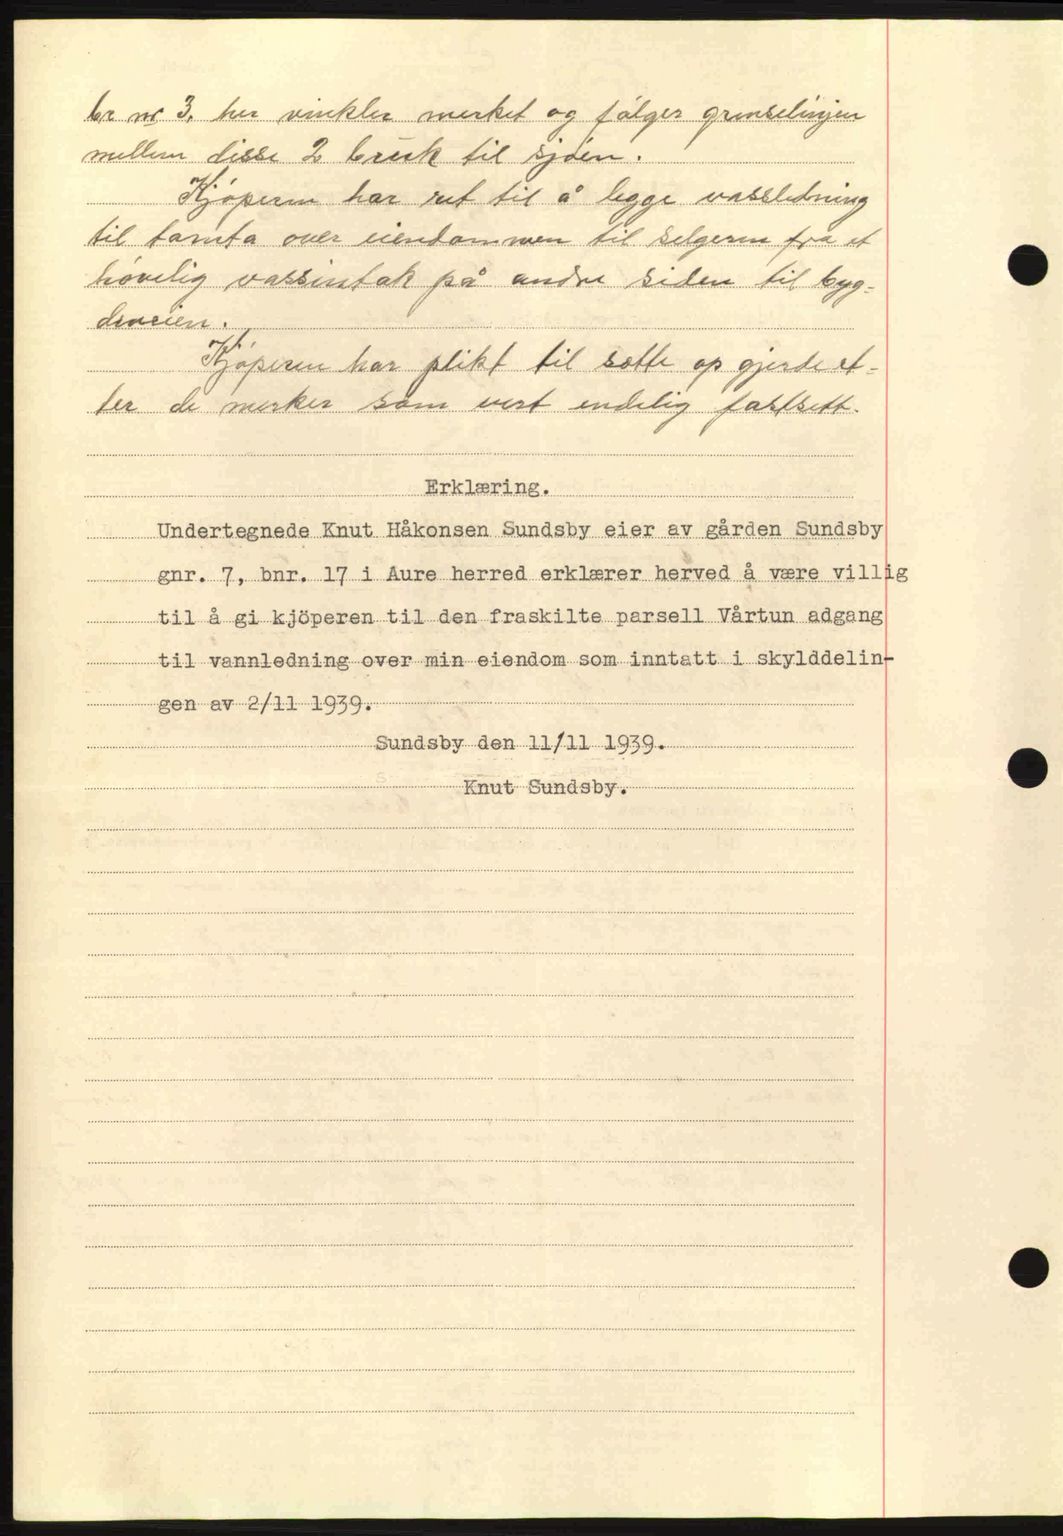 br nr 3. her vinkler merket og følger grenselinjen
mellem disse 2 bruk til sjøen.
Kjøperen har ret til å legge vassledning
til tomta over eiendommen til selgeren fra et
høvelig vassintak på andre siden til byg-
deveien.
Kjøperen har plikt til sette op gjerde et-
ter de merker som vert endelig fastsett.
Erklæring.
Undertegnede Knut Håkonsen Sundsby eier av gården Sundsby
gnr. 7, bnr. 17 i Aure herred erklærer herved å være villig
til å gi kjöperen til den fraskilte parsell Vårtun adgang
til vannledning over min eiendom som inntatt i skylddelin-
gen av 2/11 1939.
Sundsby den 11/11 1939.
Knut Sundsby.